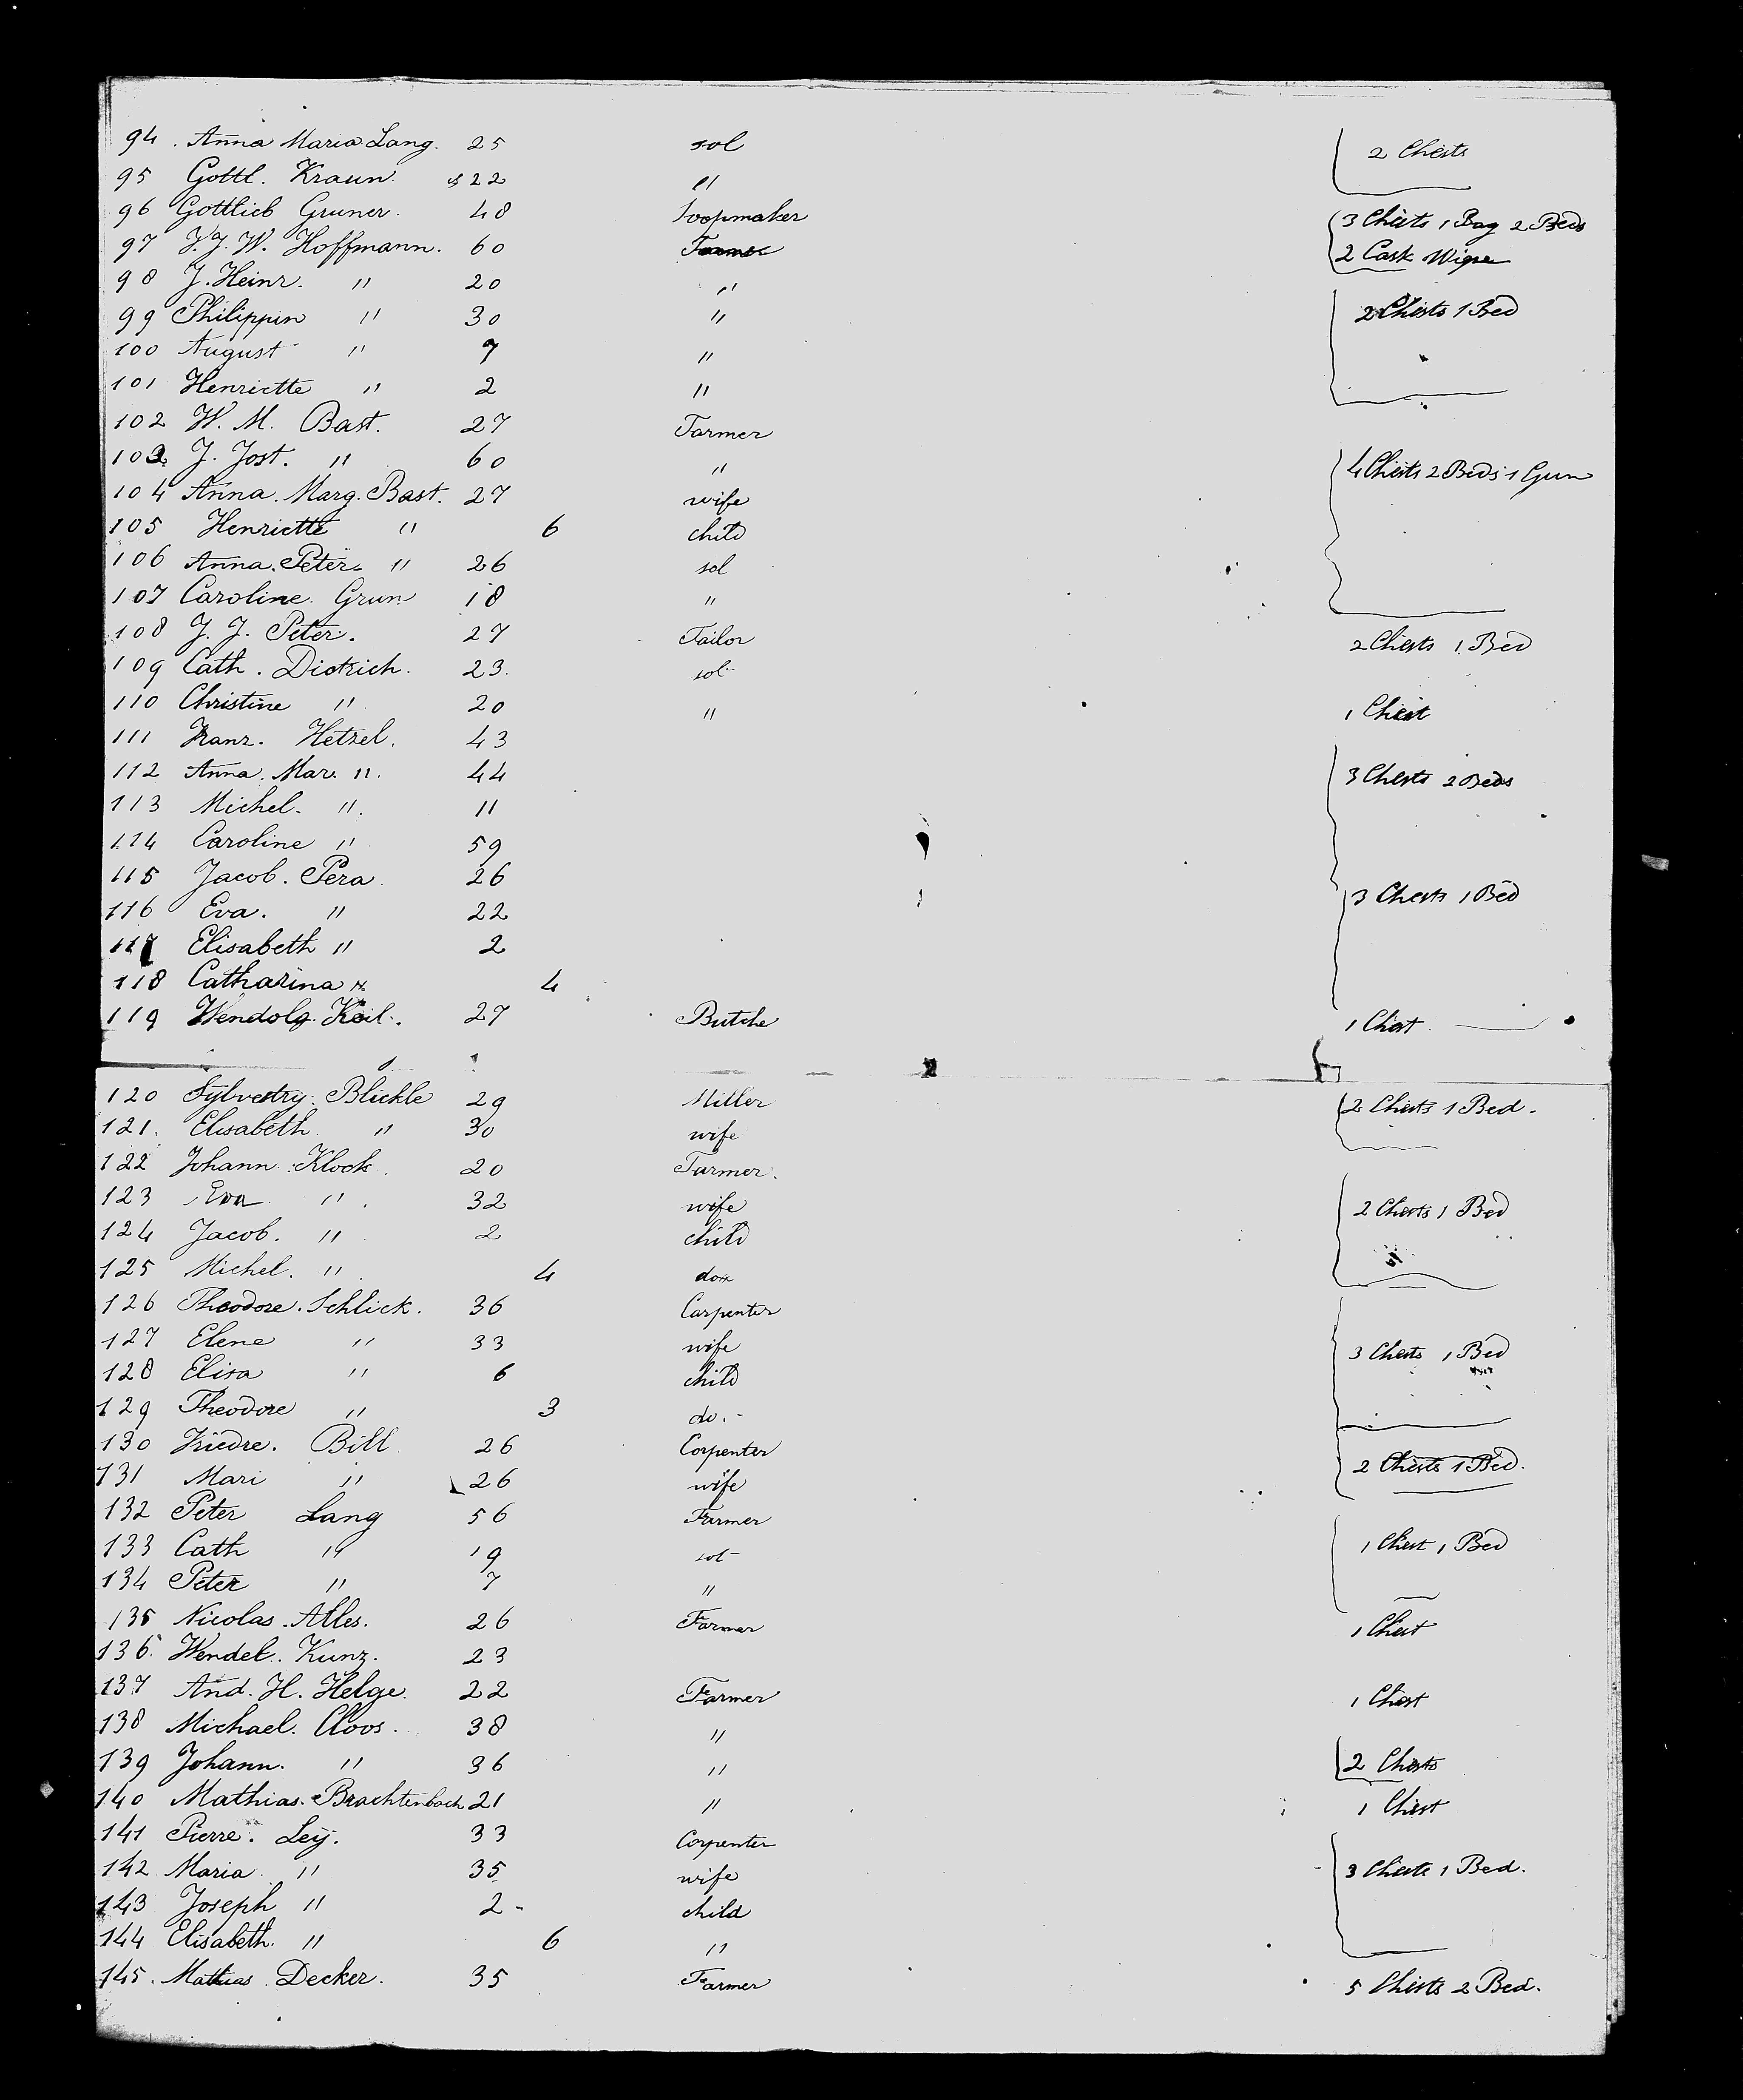 94 . Anna Maria Lang. 25 sol 2 Chests
95 Gottl. Kraun. 22 "
96 Gottlieb Gruner. 48 Soopmaker 3 Chests 1 Bag 2 Beds
97 J. W. Hoffmann. 60 Farmer 2 Cask Wine
98 J. Heinr. " 20 "
99 Philippin " 30 " 2 Chests 1 Bed
100 August " 7 "
101 Henriette " 2 "
102 W. M. Bast. 27 Farmer
103 J. Jost. " 60 " 4 Chests 2 Beds 1 Gun
104 Anna. Marg. Bast. 27 wife
105 Henriette " 6 child
106 Anna. Peter " 26 sol
107 Caroline. Grun 18 "
108 J. J. Peter. 27 Tailor 2 Chests 1 Bed
109 Cath. Dietrich. 23. sol
110 Christine " 20 " 1 Chest
111 Franz. Hetzel. 43
112 Anna. Mar. ". 44 3 Chests 2 Beds
113 Michel. ". 11
114 Caroline " 59
115 Jacob. Pera 26
116 Eva. " 22 3 Chests 1 Bed
117 Elisabeth " 2
118 Catharina " 4
119 Wendolg. Keil. 27 Butche 1 Chest
120 Sylvestry. Blickle 29 Miller 2 Chests 1 Bed.
121. Elisabeth " 30 wife
122 Johann. Klock. 20 Farmer.
123 Eva " . 32 wife 2 Chests 1 Bed
124 Jacob. " 2 child
125 Michel. " 4 do
126 Theodore. Schlick. 36 Carpenter
127 Elene " 33 wife 3 Chests 1 Bed
128 Elisa " 6 child
129 Theodore " 3 do. -
130 Friedre. Bill 26 Corpenter
131 Mari " 26 wife 2 Chests 1 Bed.
132 Peter Lang 56 Farmer
133 Cath " 19 sol 1 Chest 1 Bed
134 Peter " 7 "
135 Nicolas. Alles. 26 Farmer 1 Chest
136. Wendel. Kunz. 23
137 And. H. Helge. 22 Farmer 1 Chest
138 Michael. Cloos. 38 "
139 Johann. " 36 " 2 Chests
140 Mathias. Brachtenbach 21 " 1 Chest
141 Pierre. Leÿ. 33 Corpenter
142 Maria " 35 wife 3 Chests 1 Bed.
143 Joseph " 2 - child
144 Elisabeth. " 6 "
145. Mathias. Decker. 35 Farmer 5 Chists 2 Bed.